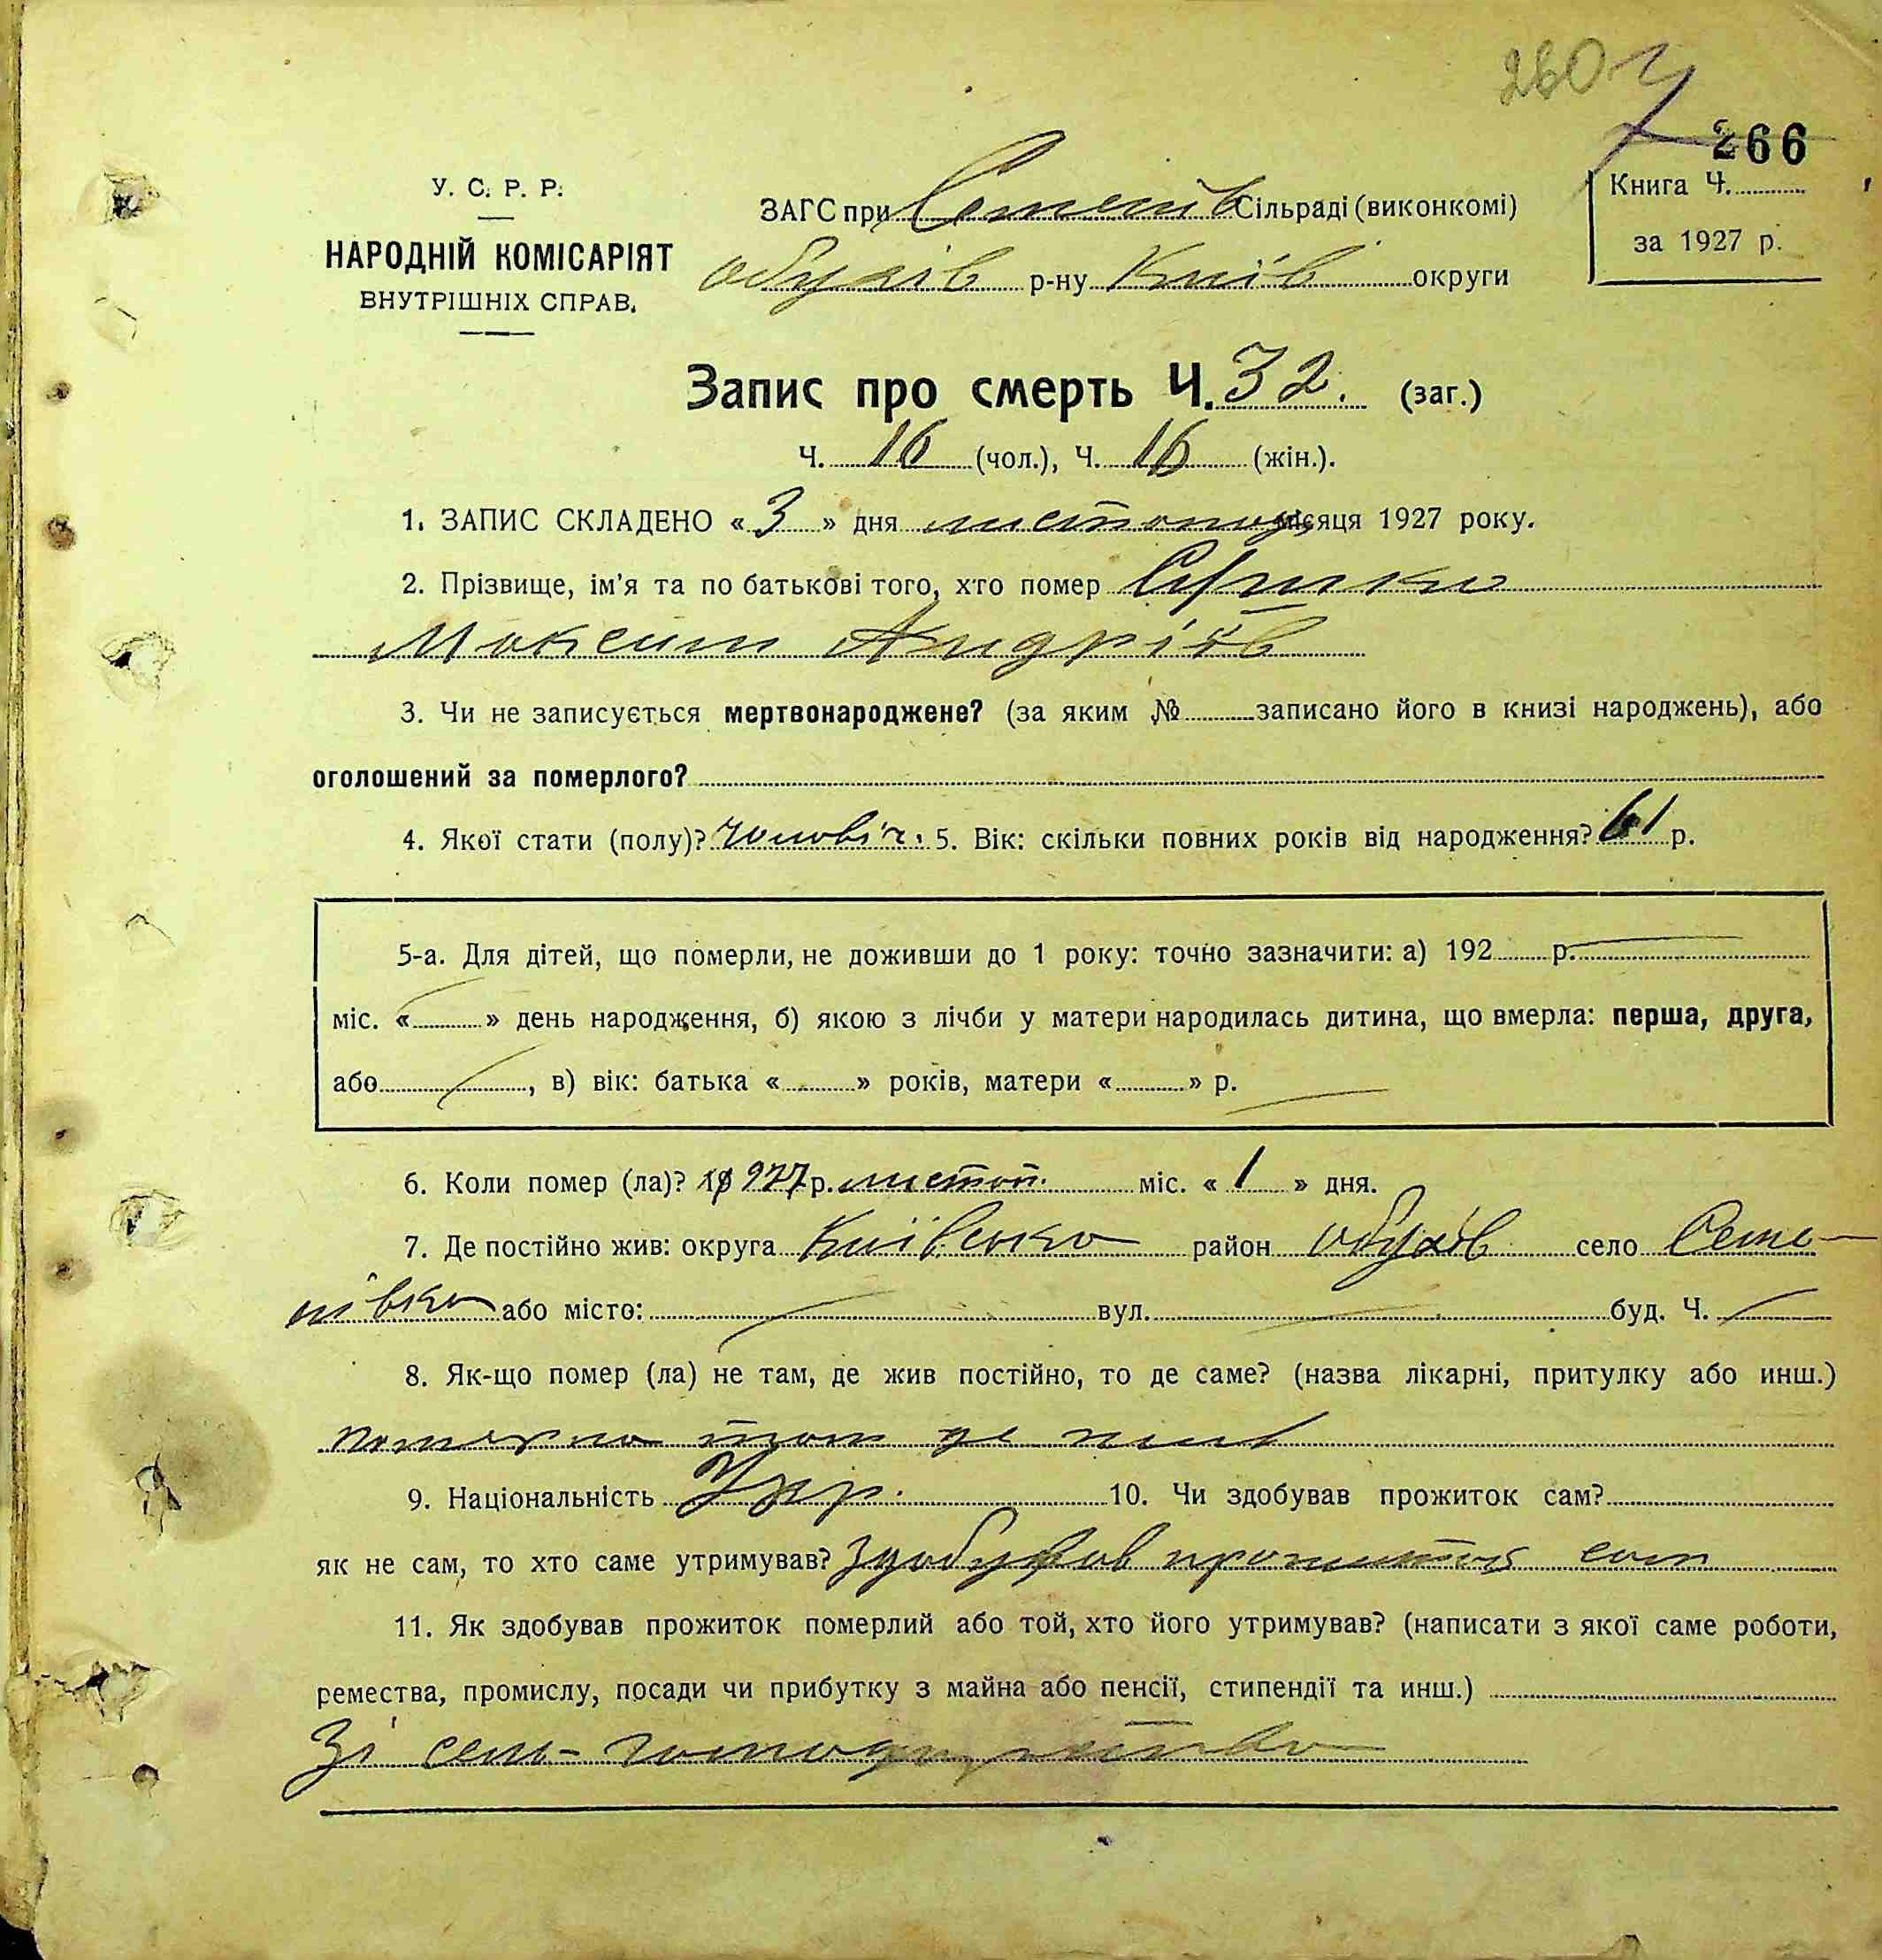 260
266
У. С. Р. Р.
НАРОДНІЙ КОМІСАРІЯТ
ВНУТРІШНІХ СПРАВ.
ЗАГС при Семенів Сільраді (виконкомі)
Обухів р-ну Київ округи
Книга Ч.
за 1927 р.
Запис про смерть Ч. 32. (заг.)
Ч. 16 (чол.), Ч. 16 (жін.).
1. ЗАПИС СКЛАДЕНО « 3 » дня листопад місяця 1927 року.
2. Прізвище, ім'я та по батькові того, хто помер
Максим Андріїв
3. Чи не записується мертвонароджене? (за яким № записано його в книзі народжень), або
оголошений за померлого?
4. Якої стати (полу)? чоловіч. 5. Вік: скільки повних років від народження? 61 р.
5-а. Для дітей, що померли, не доживши до 1 року: точно зазначити: а) 192 р.
міс. « » день народження, б) якою з лічби у матери народилась дитина, що вмерла: перша, друга,
або , в) вік: батька « » років, матери « » р.
6. Коли помер (ла)? 1927 р. листоп. міс. « 1 » дня.
7. Де постійно жив: округа Київсько район Обухів село Семе-
нівка або місто: вул. буд. Ч.
8. Як-що помер (ла) не там, де жив постійно, то де саме? (назва лікарні, притулку або инш.)
померло там де жив
9. Національність Укр. 10. Чи здобував прожиток сам?
як не сам, то хто саме утримував? здобував прожиток сам
11. Як здобував прожиток померлий або той, хто його утримував? (написати з якої саме роботи,
ремества, промислу, посади чи прибутку з майна або пенсії, стипендії та инш.)
Зі сель-господарства